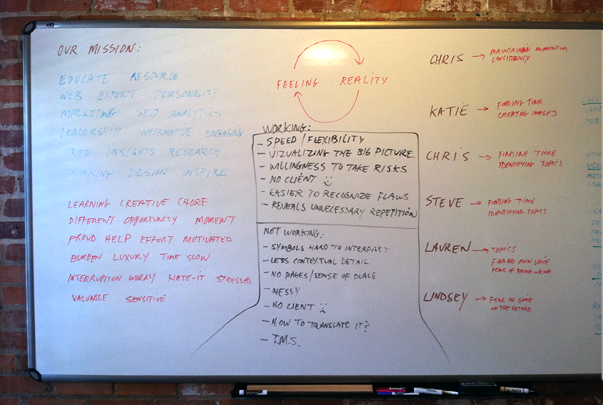 OUR MISSION:
EDUCATE RESOURCE
WEB EXPERT PERSONALITY
MARKETING SEO ANALYTICS
LEADERSHIP INFORMATIVE ENGAGING
INSIGHTS RESEARCH
THINKING DESIGN INSPIRE
LEARNING CREATIVE CHORE
DIFFERENT OPPORTUNITY MOMENT
PROUD HELP EFFORT MOTIVATED
BURDEN LUXURY TIME SLOW
INTERRUPTION WORRY HATE-IT STRESSED
VALUABLE SENSITIVE
FEELING REALITY
WORKING:
- SPEED/FLEXIBILITY
- VIZUALIZING THE BIG PICTURE
- WILLINGNESS TO TAKE RISKS
- NO CLIENT :)
- EASIER TO RECOGNIZE FLAWS
- REVEALS UNNECESSARY REPETITION
NOT WORKING:
- SYMBOLS HARD TO INTERPRET
- LESS CONTEXTUAL DETAIL
- NO PAGES/SENSE OF PLACE
- MESSY
- NO CLIENT :(
- HOW TO TRANSLATE IT?
- T.M.S.
CHRIS → MAINTAINING MOMENTUM,
CONSISTENCY
KATIE → FINDING TIME
CREATING IMAGES
CHRIS → FINDING TIME
IDENTIFYING TOPICS
STEVE → FINDING TIME
IDENTIFYING TOPICS
LAUREN → TOPICS
FINDING OWN VOICE
FEAR OF BEING WRONG
LINDSEY → FEAR OF
OF THE